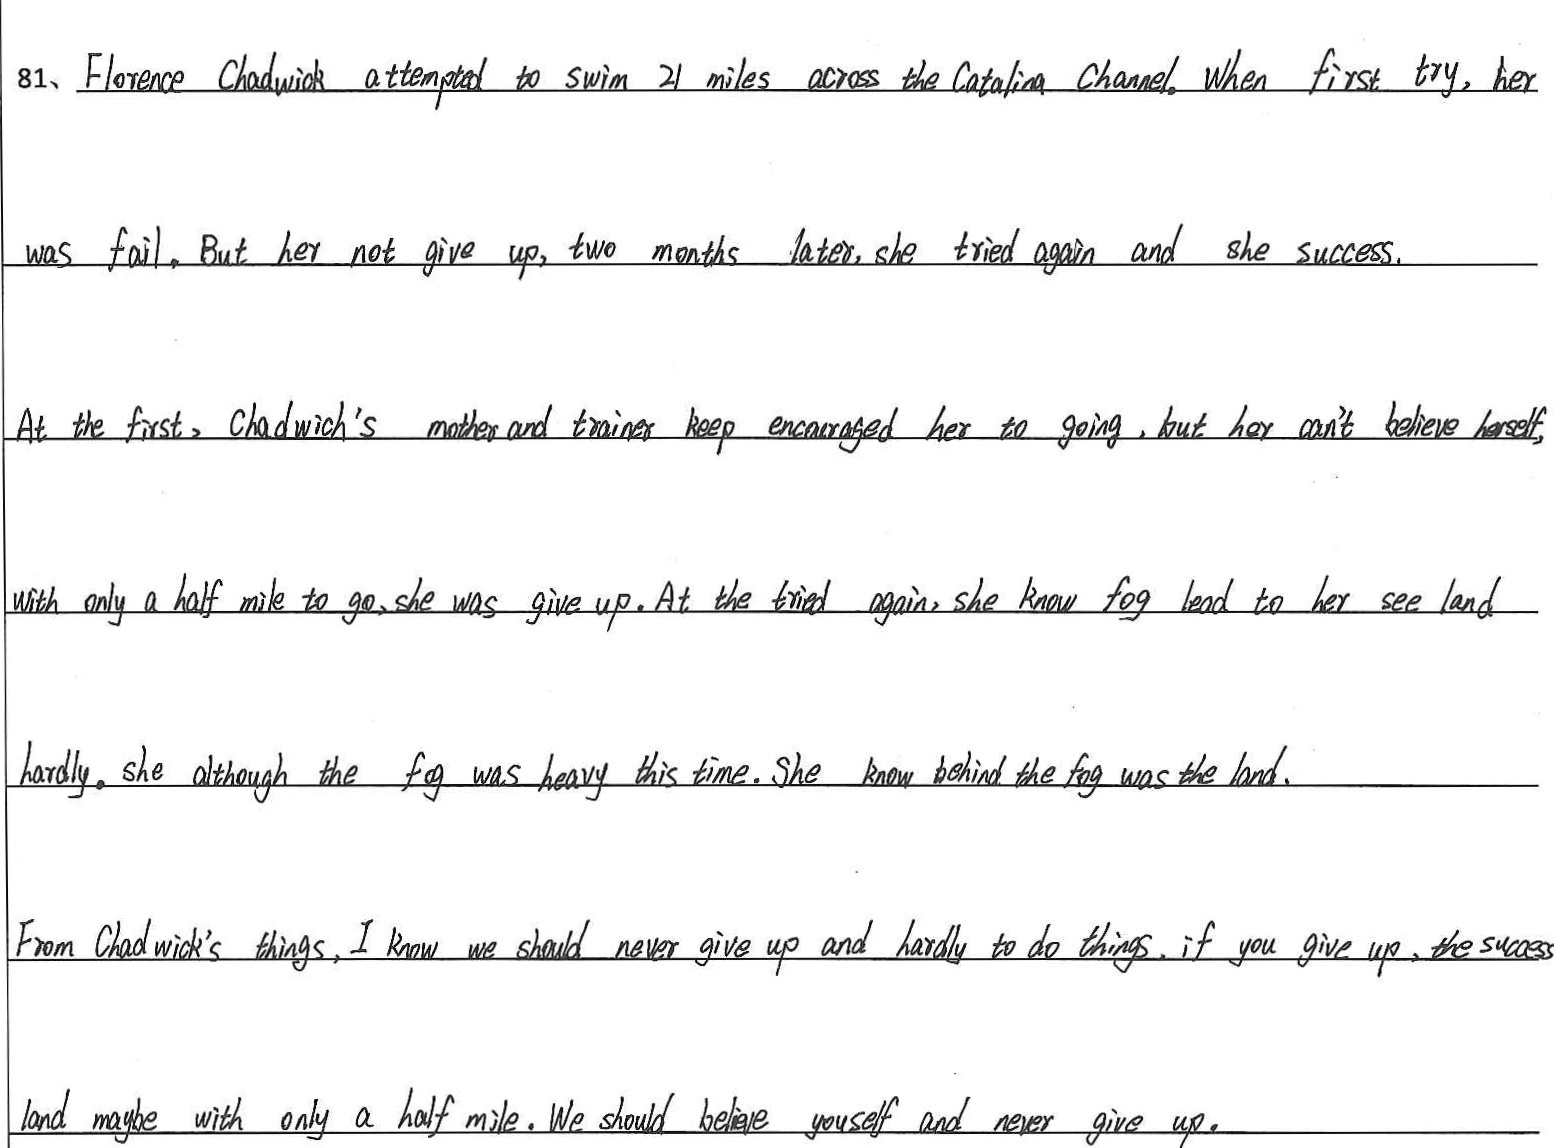 81、Florence Chadwick attempted to swim 21 miles across the Catalina Channel. When first try, her
was fail. But her not give up, two months later, she tried again and she success.
At the first, Chadwich's mother and trainer keep encouraged her to going, but her can't believe herself,
with only a half mile to go, she was give up. At the tried again, she know fog lead to her see land
hardly. she although the fog was heavy this time. She know behind the fog was the land.
From Chadwick's things, I know we should never give up and hardly to do things. if you give up, the success
land maybe with only a half mile. We should belieie youself and never give up.